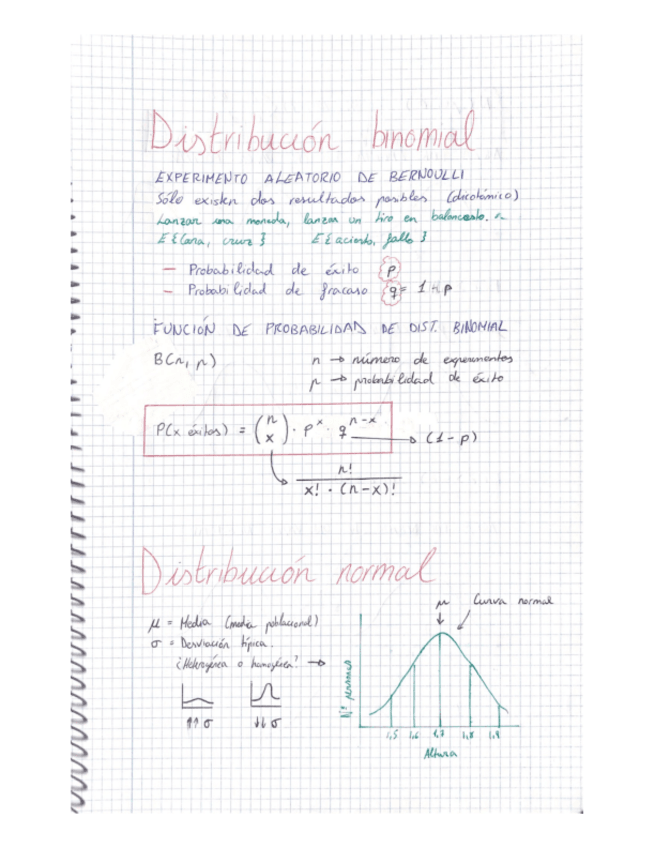 Distribución binomial
EXPERIMENTO ALEATORIO DE BERNOULLI
Sólo existen dos resultados posibles (dicotómico)
Lanzar una moneda, lanzar un tiro en baloncesto.
E {cara, cruz} E {acierto, fallo}
— Probabilidad de éxito p
— Probabilidad de fracaso q = 1 - p
FUNCIÓN DE PROBABILIDAD DE DIST. BINOMIAL
B(n, p) n → número de experimentos
p → probabilidad de éxito
P(x éxitos) = (n x) · p^x · q^n-x → (1-p)
n!
x! · (n-x)!
Distribución normal
μ Curva normal
μ = Media (media poblacional)
σ = Desviación típica.
¿Heterogénea o homogénea? →
↑↑ σ ↓↓ σ
Nº personas
1,5 1,6 1,7 1,8 1,9
Altura